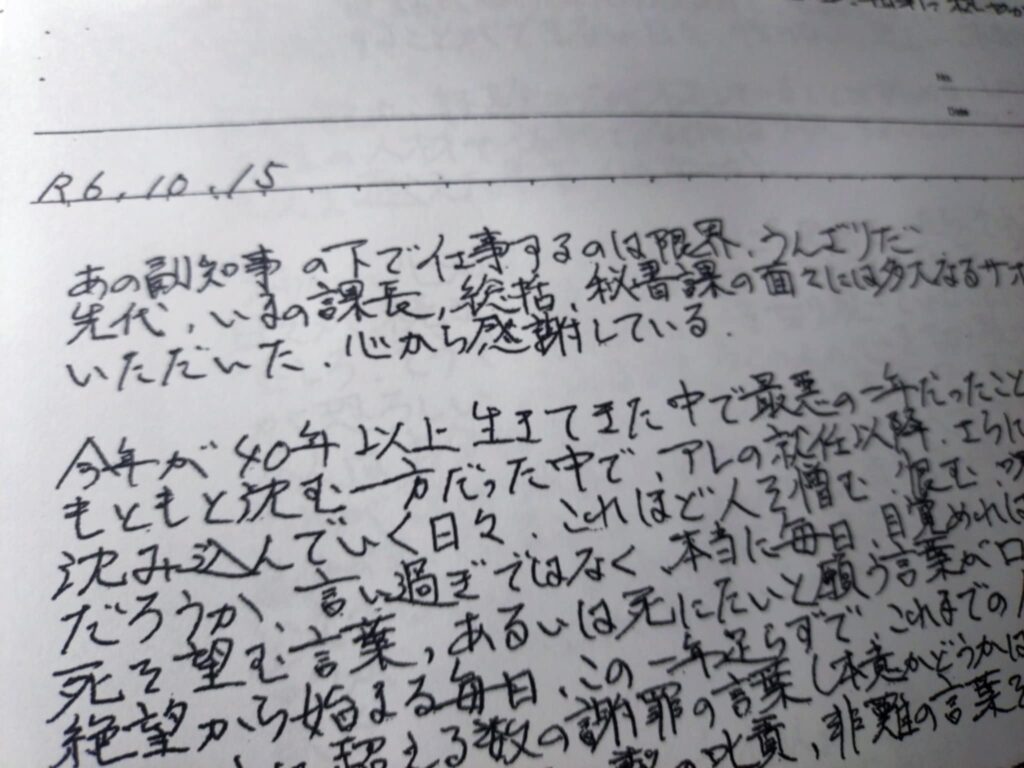 No.
Date
R6.10.15
あの副知事の下で仕事するのは限界.うんざりだ
先代,いまの課長,総括,秘書課の面々には多大なるサポ
いただいた.心から感謝している.
今年が40年以上生きてきた中で最悪の一年だったこと
もともと沈む一方だった中で,アレの就任以降.さらに
沈み込んでいく日々.これほど人を憎む.恨む.
だろうか,言い過ぎではなく,本当に毎日,目覚めれば
死を望む言葉,あるいは死にたいと願う言葉が口
絶望から始まる毎日.この一年足らずで,これまでの
超える数の謝罪の言葉(本意かどうかは
の叱責,非難の言葉を